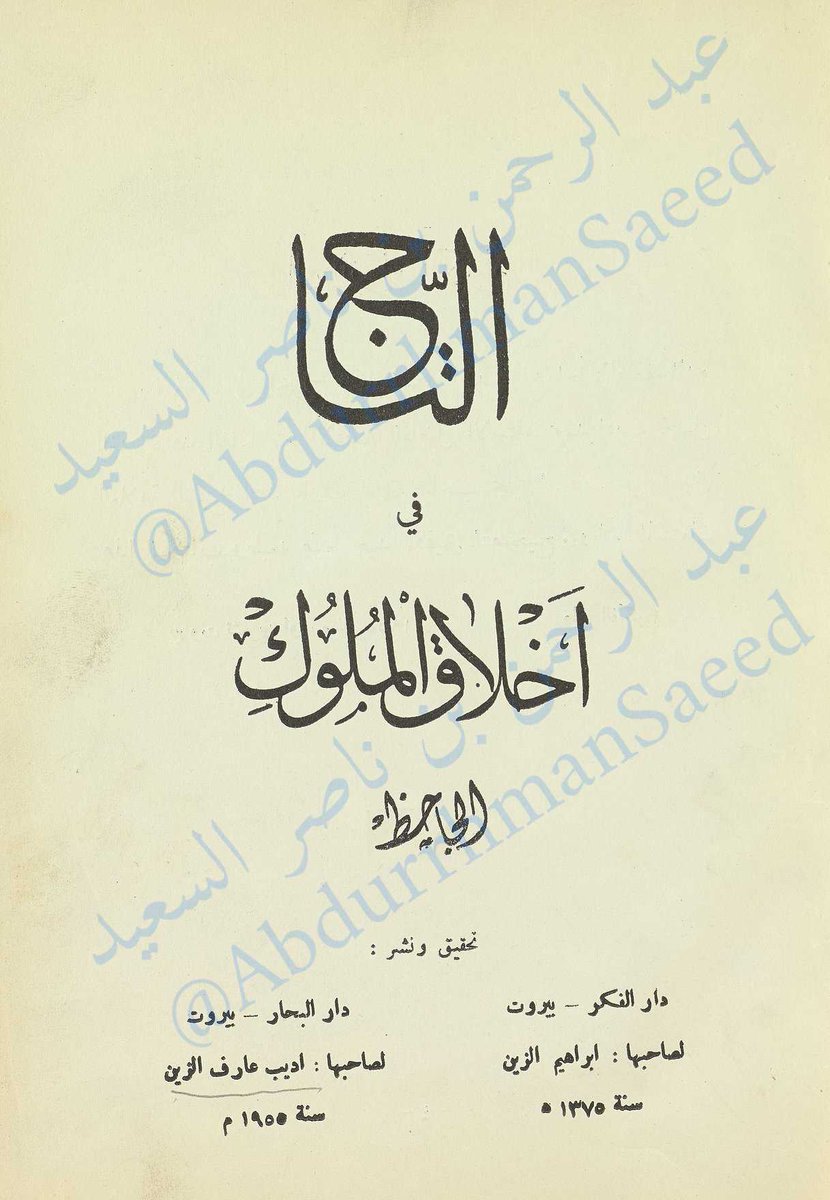 التّاج
في
أَخْلاق الْمُلُوكِ
الجاحظ
تحقيق ونشر :
دار الفكر – بيروت
لصاحبها : ابراهيم الزين
سنة ١٣٧٥ ه
دار البحار – بيروت
لصاحبها : اديب عارف الزين
سنة ١٩٥٥ م
عبد الرحمن بن ناصر السعيد
@AbdurrhmanSaeed
عبد الرحمن بن ناصر السعيد
@AbdurrhmanSaeed